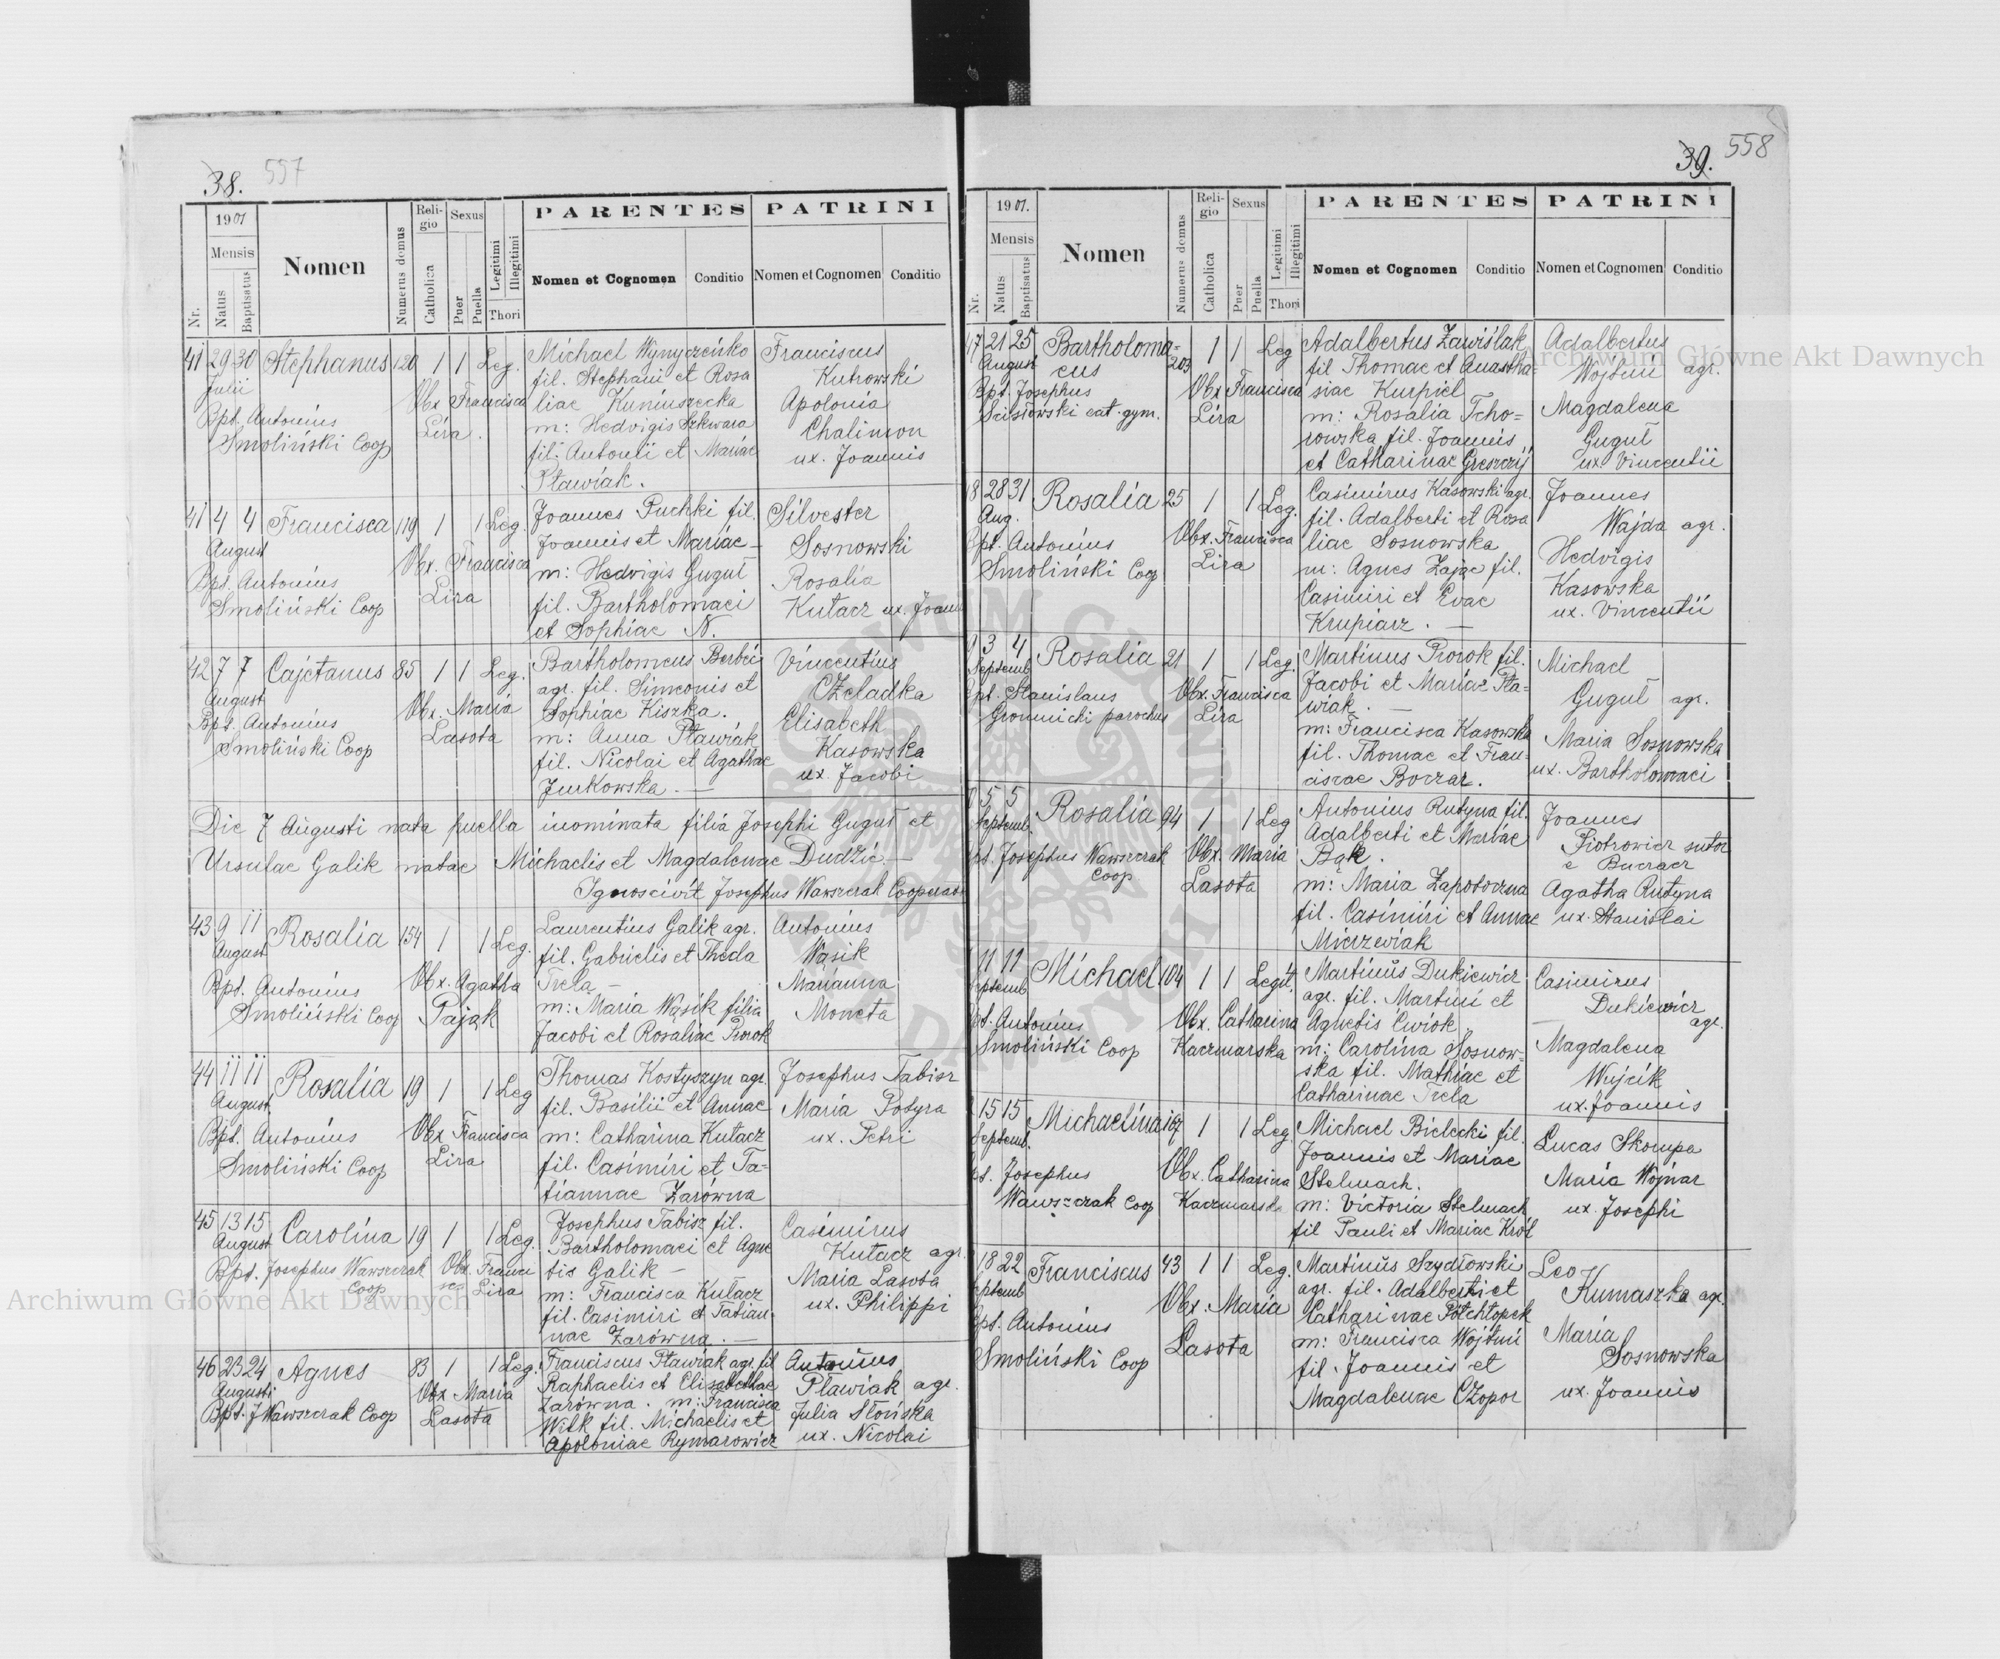 38. 557
1901
Mensis
Nr.
Natus
Baptisatus
Nomen
Numerus domus
Religio
Catholica
Sexus
Puer
Puella
Legitimi
Illegitimi
Thori
PARENTES
Nomen et Cognomen
Conditio
PATRINI
Nomen et Cognomen
Conditio
41 29 30 Stephanus 120 1 1 Leg.
Julii
Bpt. Antonius
Smoliński Coop
Obx Francisca
Lira.
Michael Wynyczeńko
fil. Stephani et Rosa
liae Kuniuszecka
m: Hedvigis Szkwara
fil. Antonii et Mariae
Pławiak.
Franciscus
Kutrowski
Apolonia
Chalimon
ux. Joannis
41 4 4 Francisca 119 1 1 Leg.
August
Bpt. Antonius
Smoliński Coop
Obx. Francisca
Lira
Joannes Puchki fil.
Joannis et Mariae
m: Hedvigis Guguł
fil. Bartholomaei
et Sophiae N.
Silvester
Sosnowski
Rosalia
Kutacz ux. Joann
42 7 7 Cajetanus 85 1 1 Leg.
August
Bpt. Antonius
Smoliński Coop
Obx. Maria
Lasota
Bartholomeus
agr. fil. Simeonis et
Sophiae Kiszka.
m: Anna Pławiak
fil. Nicolai et Agathae
Jurkowska. —
Vincentius
Czeladka
Elisabeth
Kasowska
ux. Jacobi
Die 7 Augusti nata puella inominata filia Josephi Guguł et
Ursulae Galik natae Michaelis et Magdalenae Dudzic. —
Josephus Wawszczak Cooperator
43 9 11 Rosalia 154 1 1 Leg.
August
Bpt. Antonius
Smoliński Coop
Obx. Agatha
Pająk
Laurentius Galik agr.
fil. Gabrielis et Thecla
Trela —
m: Maria Wąsik filia
Jacobi et Rosaliae Prorok
Antonius
Wąsik
Marianna
Moneta
44 11 11 Rosalia 19 1 1 Leg
August
Bpt. Antonius
Smoliński Coop
Obx Francisca
Lira
Thomas Kostyszyn agr.
fil. Basilii et Annae
m: Catharina Kutacz
fil. Casimiri et Ta=
tiannae Zarówna
Josephus Tabisz
Maria Posyra
ux. Petri
45 13 15 Carolina 19 1 1 Leg.
August
Bpt. Josephus Wawszczak
Coop
Obx. Franci
sca Lira
Josephus Tabisz fil.
Bartholomaei et Agne
tis Galik —
m: Francisca Kutacz
fil. Casimiri et Tatian-
nae Zarówna. —
Casimirus
Kutacz agr.
Maria Lasota
ux. Philippi
46 23 24 Agnes 83 1 1 Leg.
Augusti
Bpt. J Wawszczak Coop
Obx Maria
Lasota
Franciscus Pławiak agr. fil
Raphaelis et Elisabethae
Zarówna. m: Francisca
Wilk fil. Michaelis et
Apoloniae Rymarowicz
Antonius
Pławiak agr.
Julia Słońska
ux. Nicolai
39. 558
1901.
Mensis
Nr.
Natus
Baptisatus
Nomen
Numerus domus
Religio
Catholica
Sexus
Puer
Puella
Legitimi
Illegitimi
Thori
PARENTES
Nomen et Cognomen
Conditio
PATRINI
Nomen et Cognomen
Conditio
17 21 25 Bartholoma=
eus 203 1 1 Leg
August
Bpt. Josephus
Ścisłowski cat. gym.
Obx Francisca
Lira
Adalbertus Zawiślak
fil Thomae et Anastha=
siae Kurpiel
m: Rosalia Tcho=
rowska fil. Joannis
et Catharinae Greszczij
Adalbertus
Wojtuń agr.
Magdalena
Guguł
ux Vincentii
18 28 31 Rosalia 25 1 1 Leg.
Aug.
Bpt. Antonius
Smoliński Coop
Obx. Francisca
Lira
Casimirus Kasowski agr.
fil. Adalberti et Rosa
liae Sosnowska
m: Agnes Zając fil.
Casimiri et Evae
Krupiarz. —
Joannes
Wajda agr.
Hedvigis
Kasowska
ux. Vincentii
9 3 4 Rosalia 21 1 1 Leg.
Septemb
Bpt. Stanislaus
Gromnicki parochus
Obx. Francisca
Lira
Martinus Prorok fil.
Jacobi et Mariae Pła=
wiak. —
m: Francisca Kasowska
fil. Thomae et Fran-
ciscae Boczar.
Michael
Guguł agr.
Maria Sosnowska
ux. Bartholomaei
5 5 Rosalia 94 1 1 Leg
Septemb.
pt. Josephus Wawszczak
Coop
Obx. Maria
Lasota
Antonius Rutyna fil.
Adalberti et Mariae
Bąk.
m: Maria Zapotoczna
fil. Casimiri et Annae
Mierzewiak
Joannes
Piotrowicz sutor
e Buczacz
Agatha Rutyna
ux. Stanislai
11 11 Michael 104 1 1 Legit.
eptemb
pt. Antonius
Smoliński Coop
Obx. Catharina
Kaczmarska
Martinus Dukiewicz
agr. fil. Martini et
Agnetis Ćwiok
m: Carolina Sosnow-
ska fil. Mathiae et
Catharinae Trela
Casimirus
Dukiewicz
agr.
Magdalena
Wujcik
ux. Joannis
15 15 Michaelina 167 1 1 Leg.
Septemb.
pt. Josephus
Wawszczak Coop
Obx. Catharina
Kaczmarska
Michael Bielecki fil.
Joannis et Mariae
Stelmach.
m: Victoria Stelmach
fil Pauli et Mariae Król
Lucas Skorupa
Maria Wojnar
ux. Josephi
18 22 Franciscus 43 1 1 Leg.
eptemb
pt. Antonius
Smoliński Coop
Obx. Maria
Lasota
Martinus Szydłowski
agr. fil. Adalberti et
Catharinae
m: Francisca Wojtuń
fil. Joannis et
Magdalenae Czopor
Leo
Kumaszka agr.
Maria
Sosnowska
ux. Joannis
Archiwum Główne Akt Dawnych
Archiwum Główne Akt Dawnych
ARCHIWUM GŁÓWNE AKT DAWNYCH